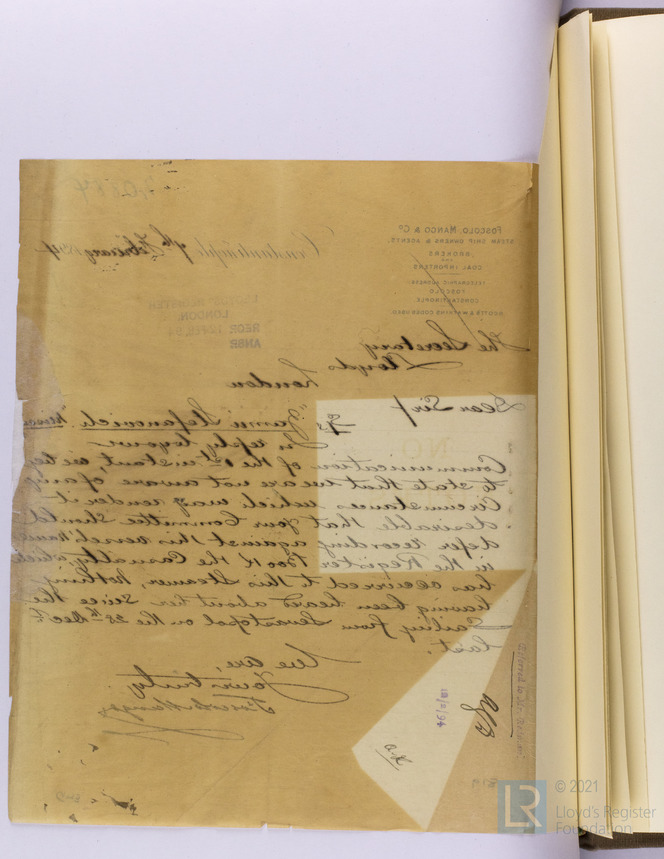 FOSCOLO, MANGO & Co
STEAM SHIP OWNERS & AGENTS,
BROKERS
AND
COAL IMPORTERS
TELEGRAPHIC ADDRESS:
FOSCOLO
CONSTANTINOPLE
SCOTT'S & WATKINS CODES USED
Constantinople 7th February 1894
LONDON
RECR 12 FEB 94
ANSR
The Secretary
Lloyds
London
Dear Sir/
Stefanovich
In reply to your
Communication of the 1st instant, we beg
to state that we are not aware of any
Circumstances which may render it
desirable that your Committee should
defer recording against this vessel's name
in the Register Book the Casualty which
has occurred to this Steamer, nothing
having been heard about her since the
Sailing from Sevastopol on the 28th Decr
last.
We are,
Yours truly
Foscolo Mango
NO
© 2021
LR
Lloyd's Register
Foundation